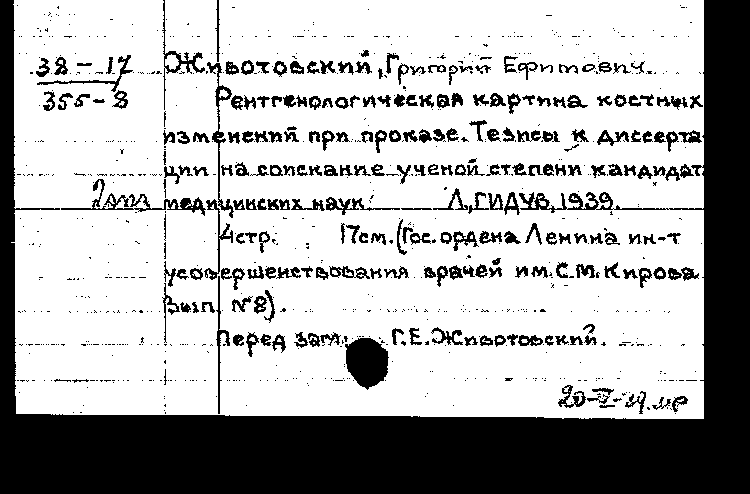 38 - 17
355 - 8
Животовский, Григорий Ефимович.
Рентгенологическая картина костных
изменений при проказе. Тезисы к диссерта-
ции на соискание ученой степени кандидата
2 экз медицинских наук. Л., ГИДУВ, 1939.
4 стр. 17 см. (Гос. ордена Ленина ин-т
усовершенствования врачей им. С.М. Кирова
Вып. №8).
Перед загл.: Г.Е. Животовский.
20-V-39.